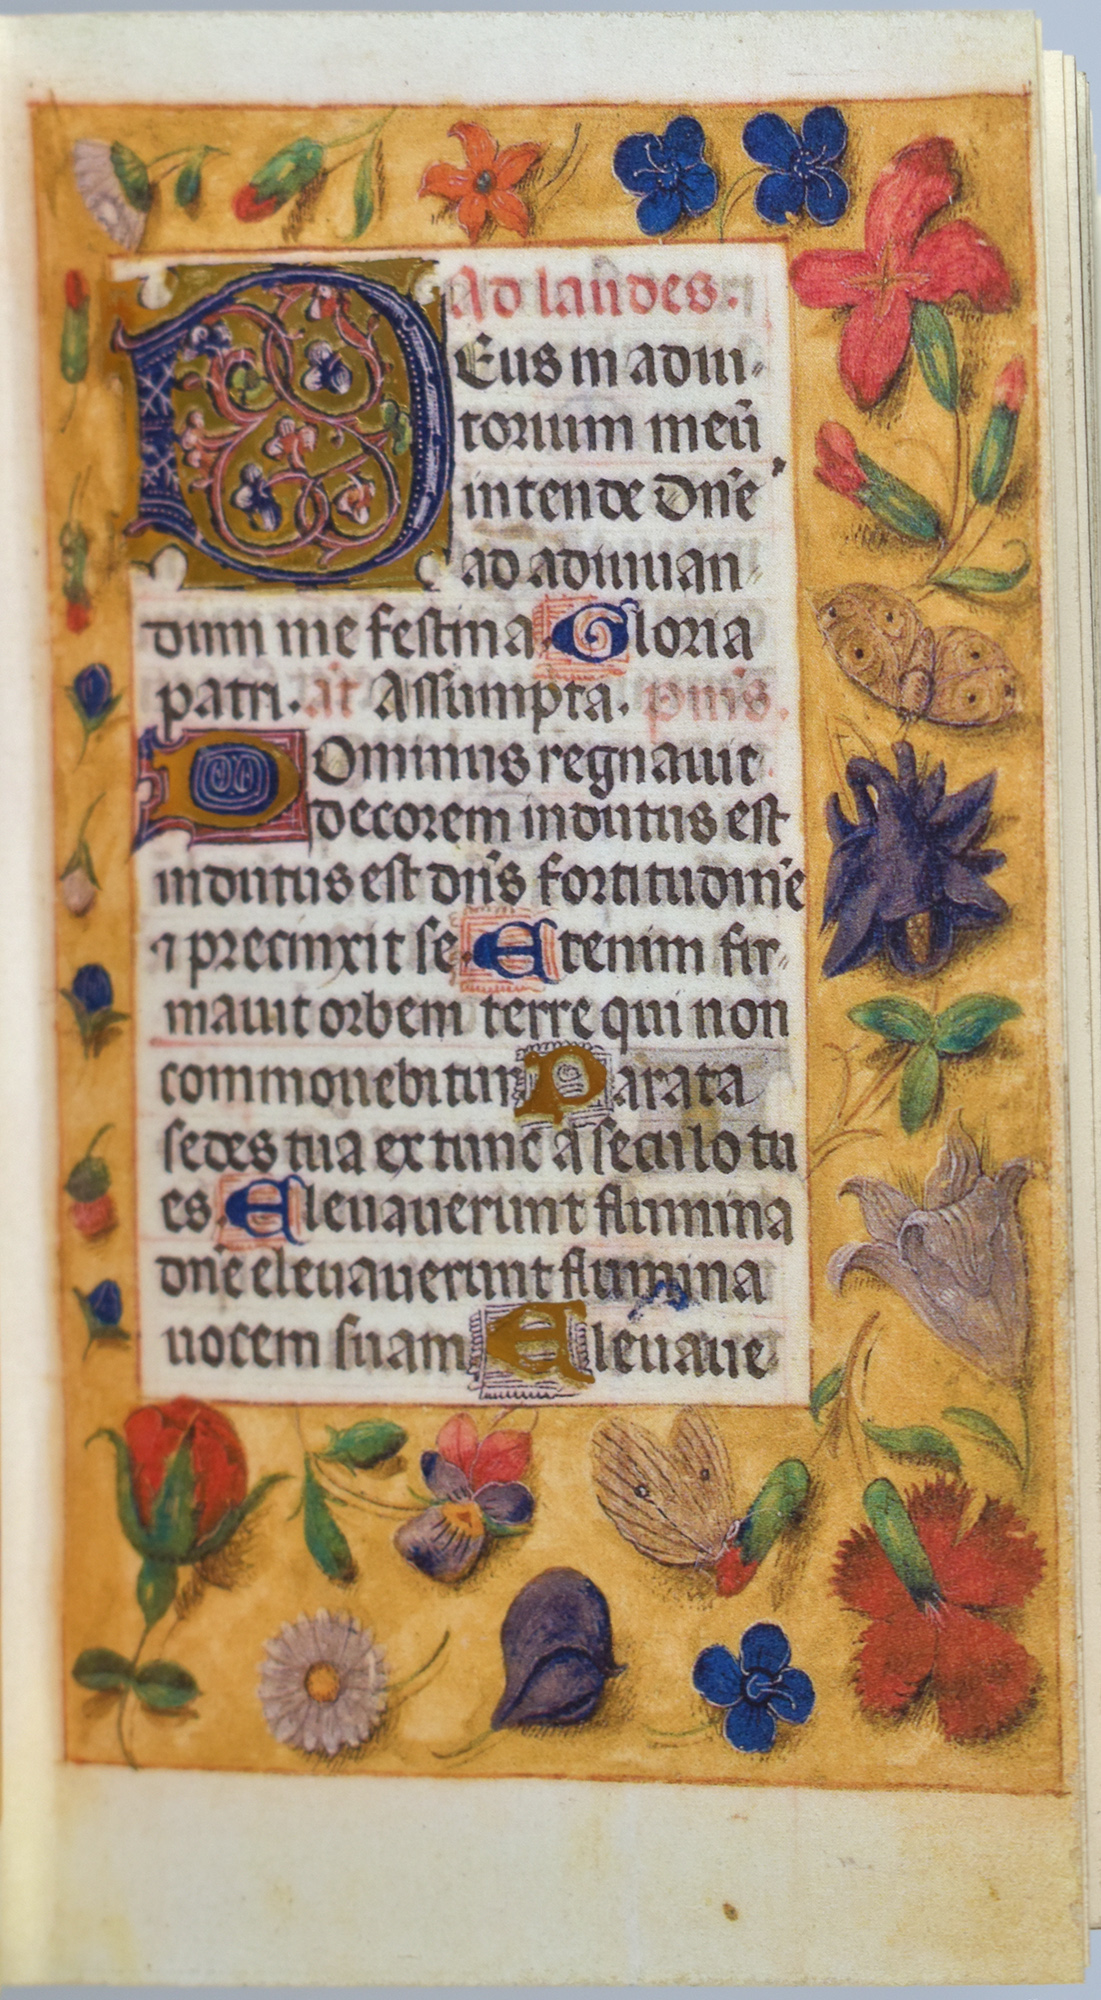 Ad laudes.
DEus in adiu-
torium meū
intende Dn̄e
ad adiuuan
dum me festina Gloria
patri. añ Assumpta. pm̄s.
DOminus regnauit
decorem indutus est
indutus est dn̄s fortitudinē
⁊ precinxit se Etenim fir-
mauit orbem terre qui non
commouebitur Parata
sedes tua ex tunc a seculo tu
es. Eleuauerunt flumina
dn̄e eleuauerunt flumina
uocem suam Eleuaue